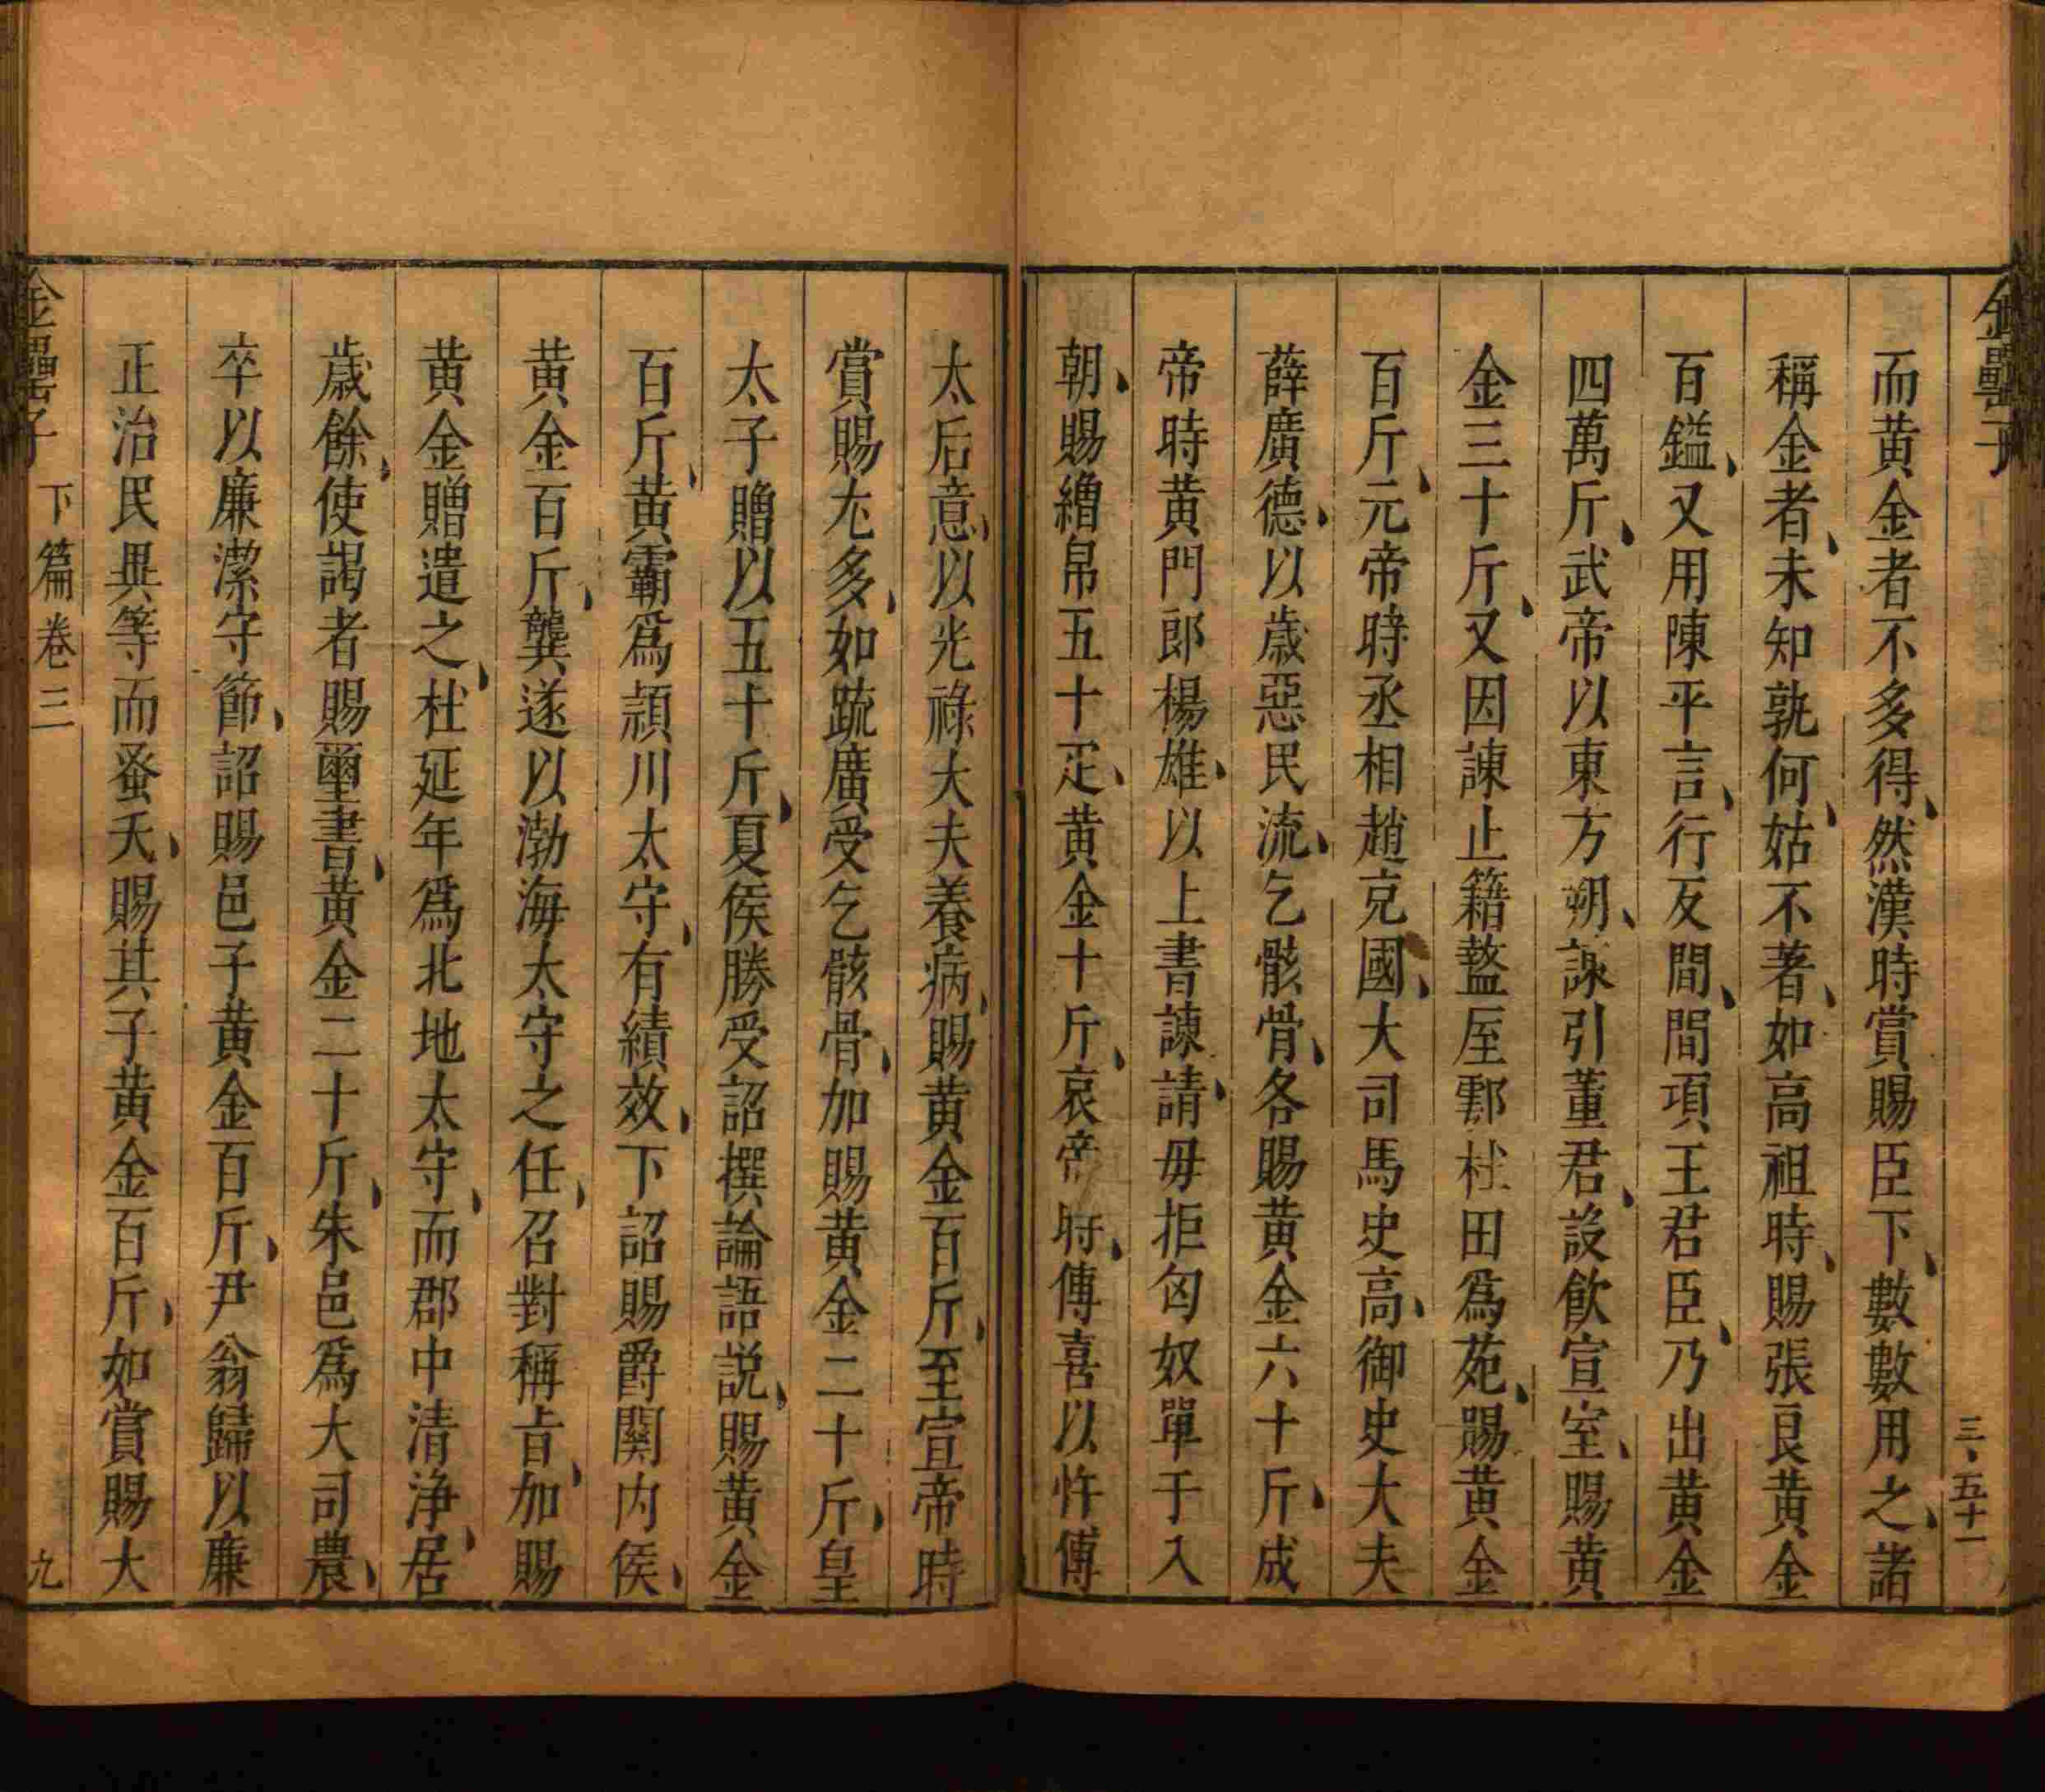 金罍子
三、五十一
而黄金者不多得、然漢時賞賜臣下、數數用之、諸
稱金者、未知孰何、姑不著、如高祖時、賜張良黄金
百鎰、又用陳平言、行反間、間項王君臣、乃出黄金
四萬斤、武帝以東方朔、諫引董君、設飲宣室、賜黄
金三十斤、又因諫止籍盩厔鄠杜田爲苑、賜黄金
百斤、元帝時丞相趙克國、大司馬史高、御史大夫
薛廣德、以歲惡民流、乞骸骨、各賜黄金六十斤、成
帝時黄門郎楊雄、以上書諫請、毋拒匈奴單于入
朝、賜繒帛五十疋、黄金十斤、哀帝時、傅喜以忤傅
太后意、以光祿大夫養病、賜黄金百斤、至宣帝時
賞賜尤多、如疏廣受乞骸骨、加賜黄金二十斤、皇
太子贈以五十斤、夏侯勝受詔撰論語説、賜黄金
百斤、黄霸爲潁川太守、有績效、下詔賜爵関内侯、
黄金百斤、龔遂以渤海太守之任、召對稱旨、加賜
黄金贈遣之、杜延年爲北地太守、而郡中清浄、居
歲餘、使謁者賜璽書、黄金二十斤、朱邑爲大司農、
卒以廉潔守節、詔賜邑子黄金百斤、尹翁歸以廉
正治民異等而蚤夭、賜其子黄金百斤、如賞賜大
金罍子 下篇卷三 九